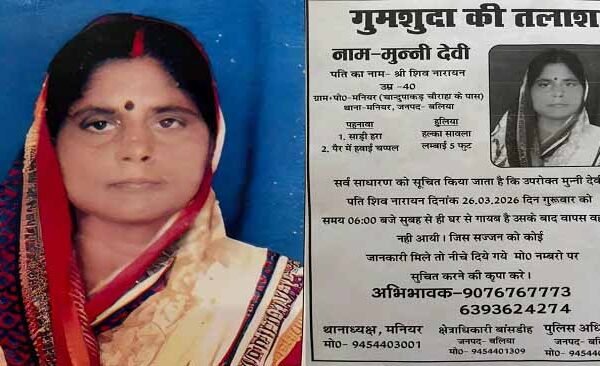 गुमशुदा की तलाश
नाम-मुन्नी देवी
पति का नाम- श्री शिव नारायन
उम्र -40
ग्राम+पो0-मनियर (चान्दुपाकड़ चौराहा के पास)
थाना-मनियर, जनपद- बलिया
पहनावा हुलिया
1. साड़ी हरा हल्का सावला
2. पैर में हवाई चप्पल लम्बाई 5 फुट
सर्व साधारण को सूचित किया जाता है कि उपरोक्त मुन्नी देवी
पति शिव नारायन दिनांक 26.03.2026 दिन गुरूवार को
समय 06:00 बजे सुबह से ही घर से गायब है उसके बाद वापस
नही आयी। जिस सज्जन को कोई
जानकारी मिले तो नीचे दिये गये मो0 नम्बरो पर
सुचित करने की कृपा करे।
अभिभावक-9076767773
6393624274
थानाध्यक्ष, मनियर क्षेत्राधिकारी बांसडीह पुलिस
मो0- 9454403001 जनपद- बलिया जनपद- बलिया
मो0- 9454401309 मो0- 94544